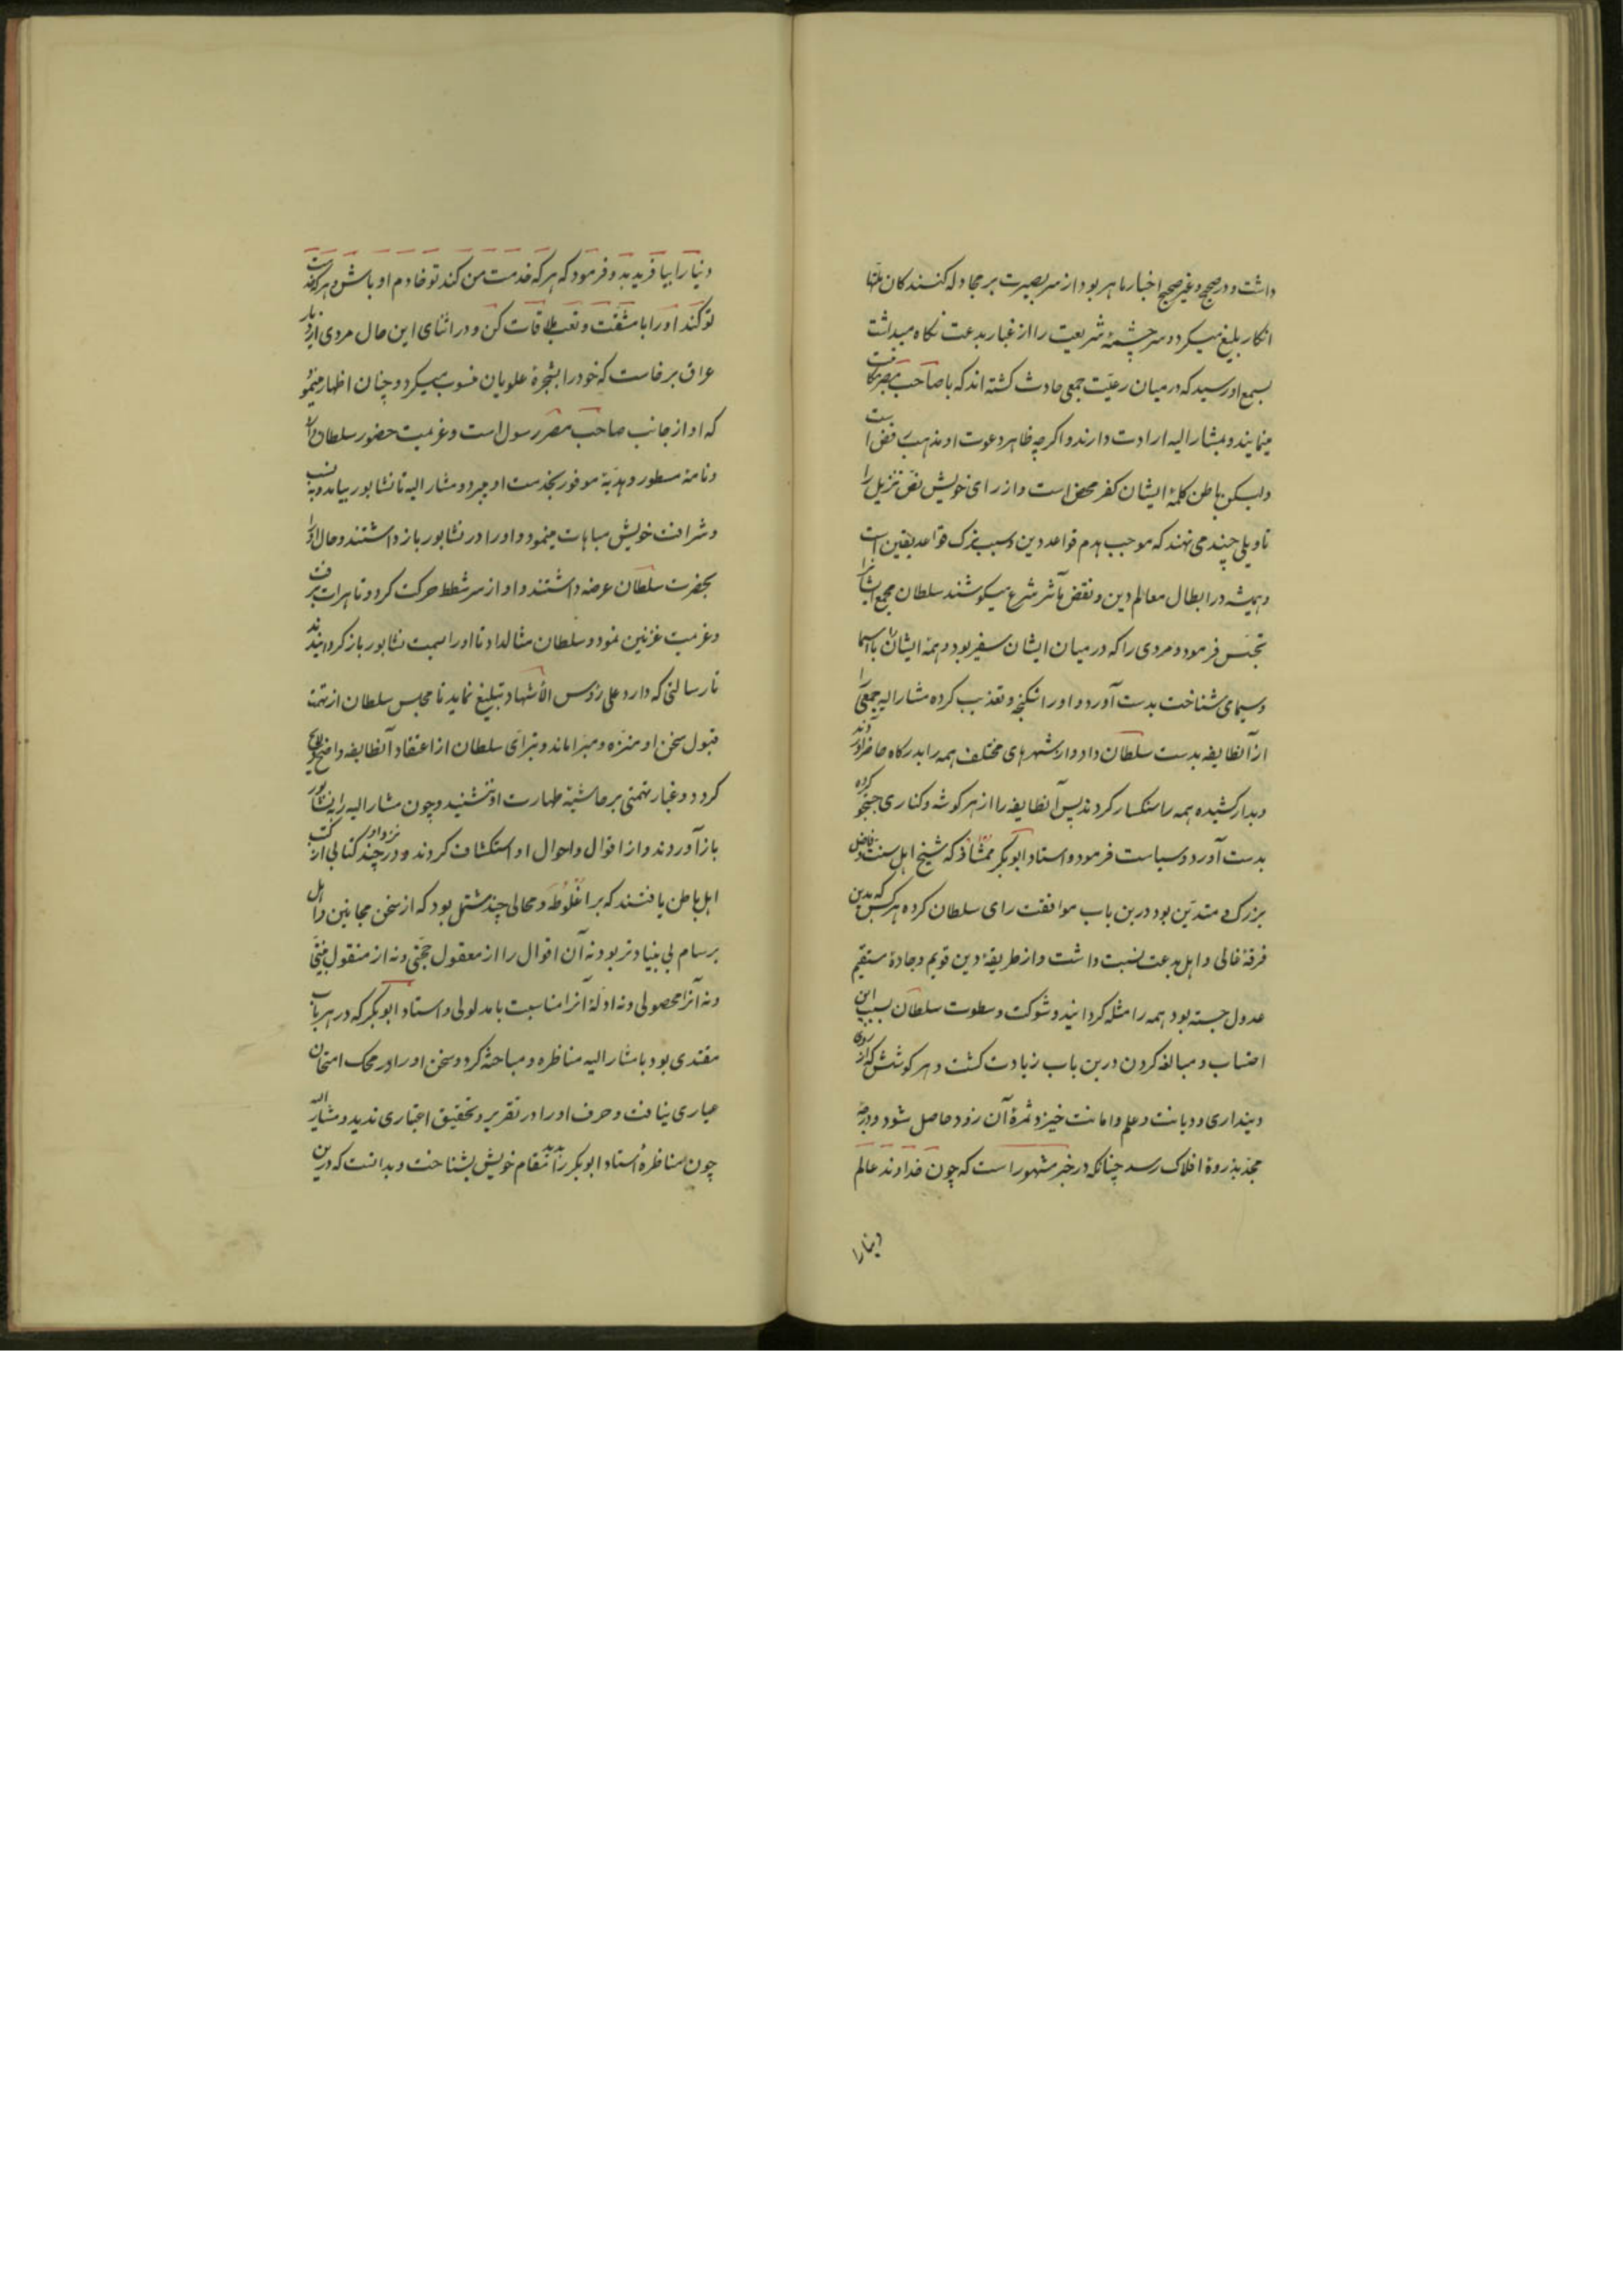 داشت و در صحیح و غیر صحیح اخبار ماهر بود از سر بصیرت بر مجادله کنندکان ملتها
انکار بلیغ میکرد و سرچشمهٔ شریعت را از غبار بدعت نکاه میداشت
بسمع او رسید که در میان رعیّت جمعی حادث کشته اند که با صاحب مصر مکاتبت
مینمایند و بمشار الیه ارادت دارند و اکرچه ظاهر دعوت او مذهب رفض است
ولیکن باطن کلمهٔ ایشان کفر محض است و از رای خویش نصّ تنزیل را
تاویلی چند می نهند که موجب هدم قواعد دین و سبب ترک قواعد یقین است
و همیشه در ابطال معالم دین و نقض مآثر شرع میکوشند سلطان مجمع ایشانرا
تجسّس فرمود و مردی را که در میان ایشان سفیر بود و همهٔ ایشان را باسما
و سیمای شناخت بدست آورد و او را شکنجه و تعذیب کرده مشار الیه جمعی را
از آنطایفه بدست سلطان داد و از شهرهای مختلف همه را بدرکاه حاضر آوردند
و بدار کشیده همه را سنکسار کردند پس آنطایفه را از هر کوشه و کناری جستجو کرده
بدست آورد و سیاست فرمود و استاد ابوبکر ممشاذ که شیخ اهل سنت و فاضل
بزرک و متدیّن بود درین باب موافقت رای سلطان کرده هر کس که بدین
فرقهٔ غالی و اهل بدعت نسبت داشت و از طریقهٔ دین قویم و جادهٔ مستقیم
عدول جسته بود همه را مثله کردانید و شوکت و سطوت سلطان بسبب این
احتساب و مبالغه کردن درین باب زیادت کشت و هر کوشش که از روی
دینداری و دیانت و علم و امانت خیزد ثمرهٔ آن زود حاصل شود و درجهٔ
مجد بذروهٔ افلاک رسد چنانکه در خبر مشهور است که چون خداوند عالم
دنیا را
دنیا را بیافرید بدو فرمود که هر که خدمت من کند تو خادم او باش و هر که خدمت
تو کند او را با مشقّت و تعب ملاقات کن و در اثنای این حال مردی از دیار
عراق برخاست که خود را بشجرهٔ علویان منسوب میکرد و چنان اظهار مینمود
که او از جانب صاحب مصر رسول است و عزیمت حضور سلطان دارد
و نامهٔ مسطور و هدیّهٔ موفور بخدمت او میبرد و مشار الیه تا نشابور بیامد و به نسب
و شرافت خویش مباهات مینمود و او را در نشابور باز داشتند و حال او را
بحضرت سلطان عرضه داشتند و او از سر شطط حرکت کرد و تا هرات برفت
و عزیمت غزنین نمود و سلطان مثال داد تا او را بسمت نشابور باز کردانیدند
تا رسالتی که دارد علی رؤس الأشهاد تبلیغ نماید تا مجلس سلطان از تهمت
قبول سخن او منزّه و مبرّا ماند و تبرّای سلطان از اعتقاد آنطایفه واضح و لایح
کردد و غبار تهمتی بر حاشیهٔ طهارت او ننشیند و چون مشار الیه را به نشابور
باز آوردند و از اقوال و احوال او استکشاف کردند و نزد او در چند کتابی از کتب
اهل باطن یافتند که بر اغلوطه و محالی چند مشتمل بود که از سخن مجانین و اهل
برسام بی بنیادتر بود نه آن اقوال را از معقول حجّتی و نه از منقول بیّنتی
و نه آنرا محصولی و نه ادلهٔ آنرا مناسبت با مدلولی و استاد ابوبکر که در هر باب
مقتدی بود با مشار الیه مناظره و مباحثه کرد و سخن او را در محک امتحان
عیاری نیافت و حرف او را در تقریر و تحقیق اعتباری ندید و مشار الیه
چون مناظرهٔ استاد ابوبکر را بدید مقام خویش بشناخت و بدانست که درین